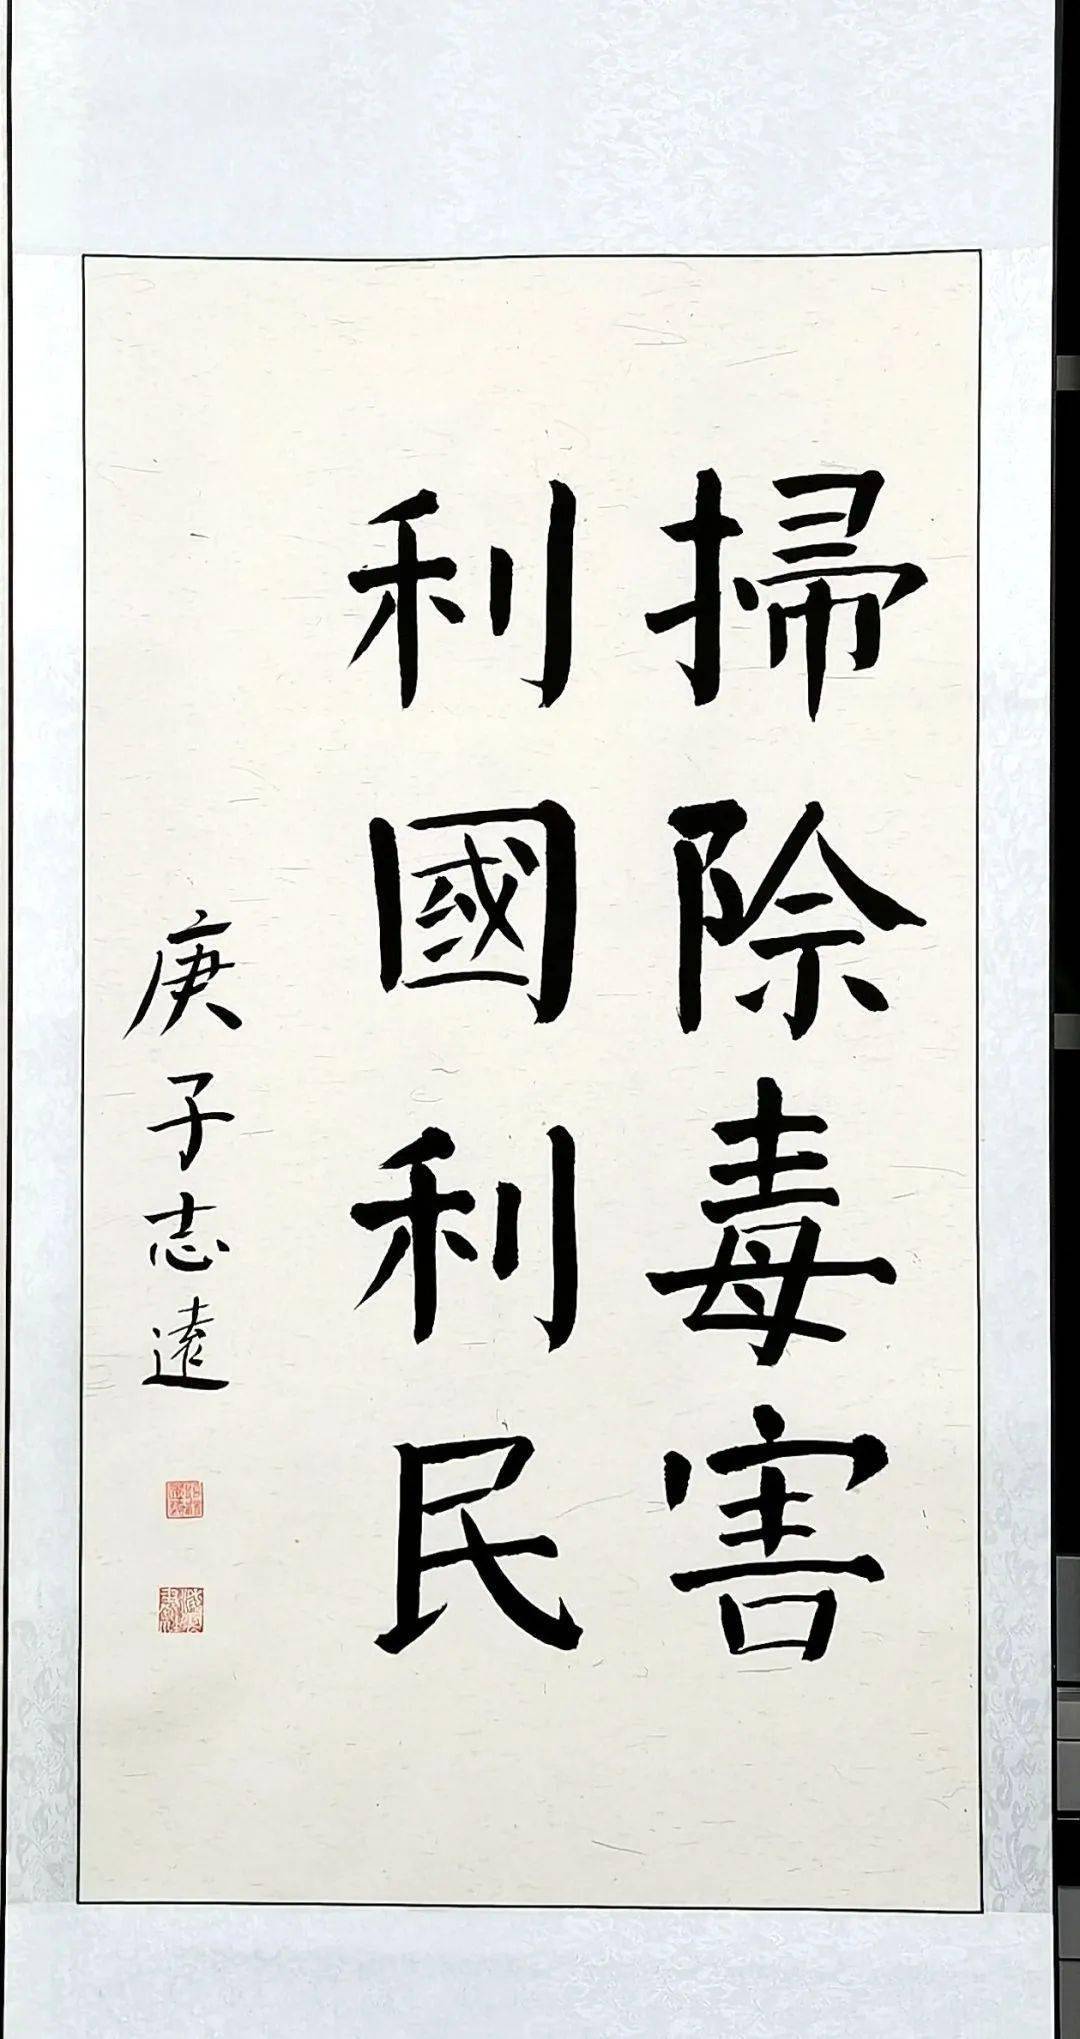 掃除毒害
利國利民
庚子志遠